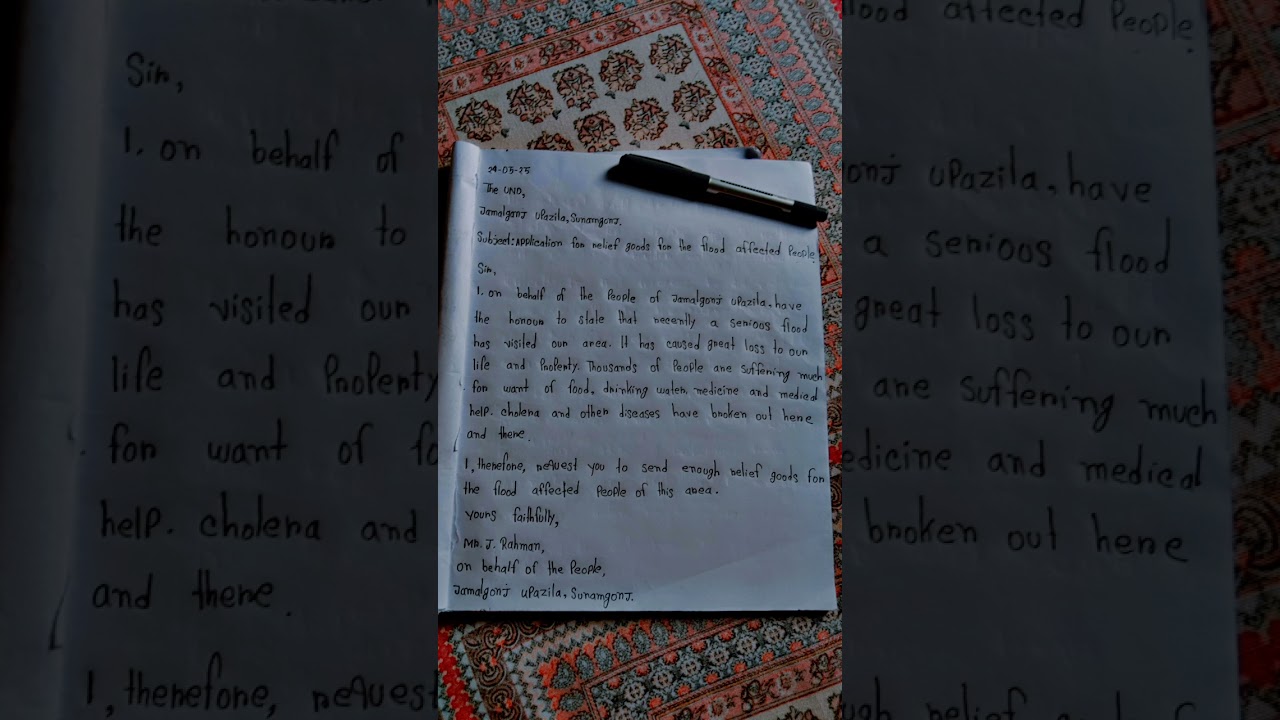 24-05-25
The UNO,
Jamalganj upazila, Sunamgonj.
Subject: Application for relief goods for the flood affected People.
Sir,
1. on behalf of the People of Jamalgonj upazila, have
the honour to state that recently a serioos flood
has visited our area. It has caused great loss to our
life and Property. Thousands of People are suffering much
for want of food, drinking water, medicine and medical
help. cholera and other diseases have broken out here
and there.
I, therefore, request you to send enough relief goods for
the flood affected People of this area.
yours faithfully,
MR. J. Rahman,
on behalf of the People,
Jamalgonj upazila, Sunamgonj.